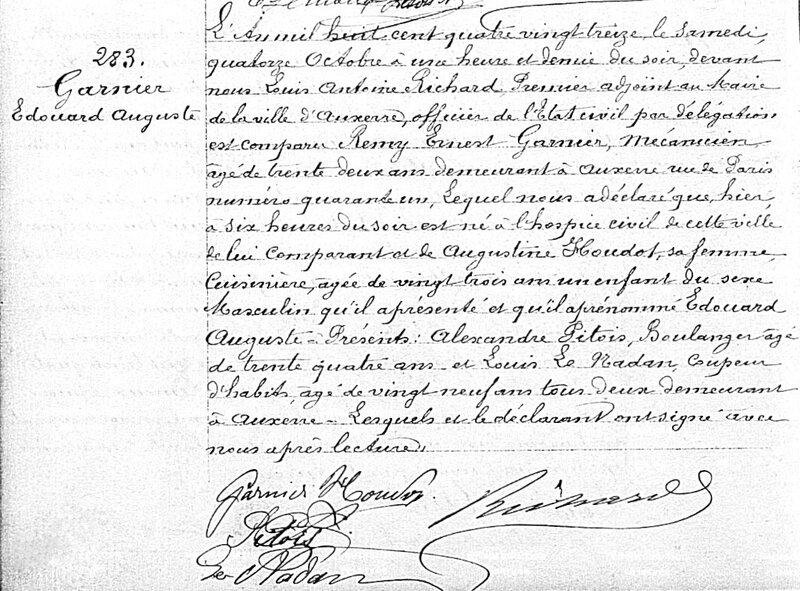 283.
Garnier
Edouard Auguste
L'An mil huit cent quatre vingt treize, le Samedi,
quatorze Octobre à une heure et demie du soir, devant
nous Louis Antoine Richard, Premier adjoint au Maire
de la ville d'Auxerre, officier de l'Etat civil par délégation
est comparu Remy Ernest Garnier, Mécanicien
âgé de trente deux ans demeurant à Auxerre rue de Paris
numéro quarante un, Lequel nous a déclaré que, hier,
à six heures du soir est né à l'hospice civil de cette ville
de lui Comparant et de Augustine Houdot, sa femme,
Cuisinière, agée de vingt trois ans un enfant du sexe
Masculin qu'il a présenté et qu'il a prénommé Edouard
Auguste – Présents: Alexandre Pitois, Boulanger âgé
de trente quatre ans et Louis Le Nadan, Coupeur
d'habits, âgé de vingt neuf ans tous deux demeurant
à Auxerre – Lesquels et le déclarant ont signé avec
nous après lecture.
Garnier Houdot
Richard
Pitois
Le Nadan